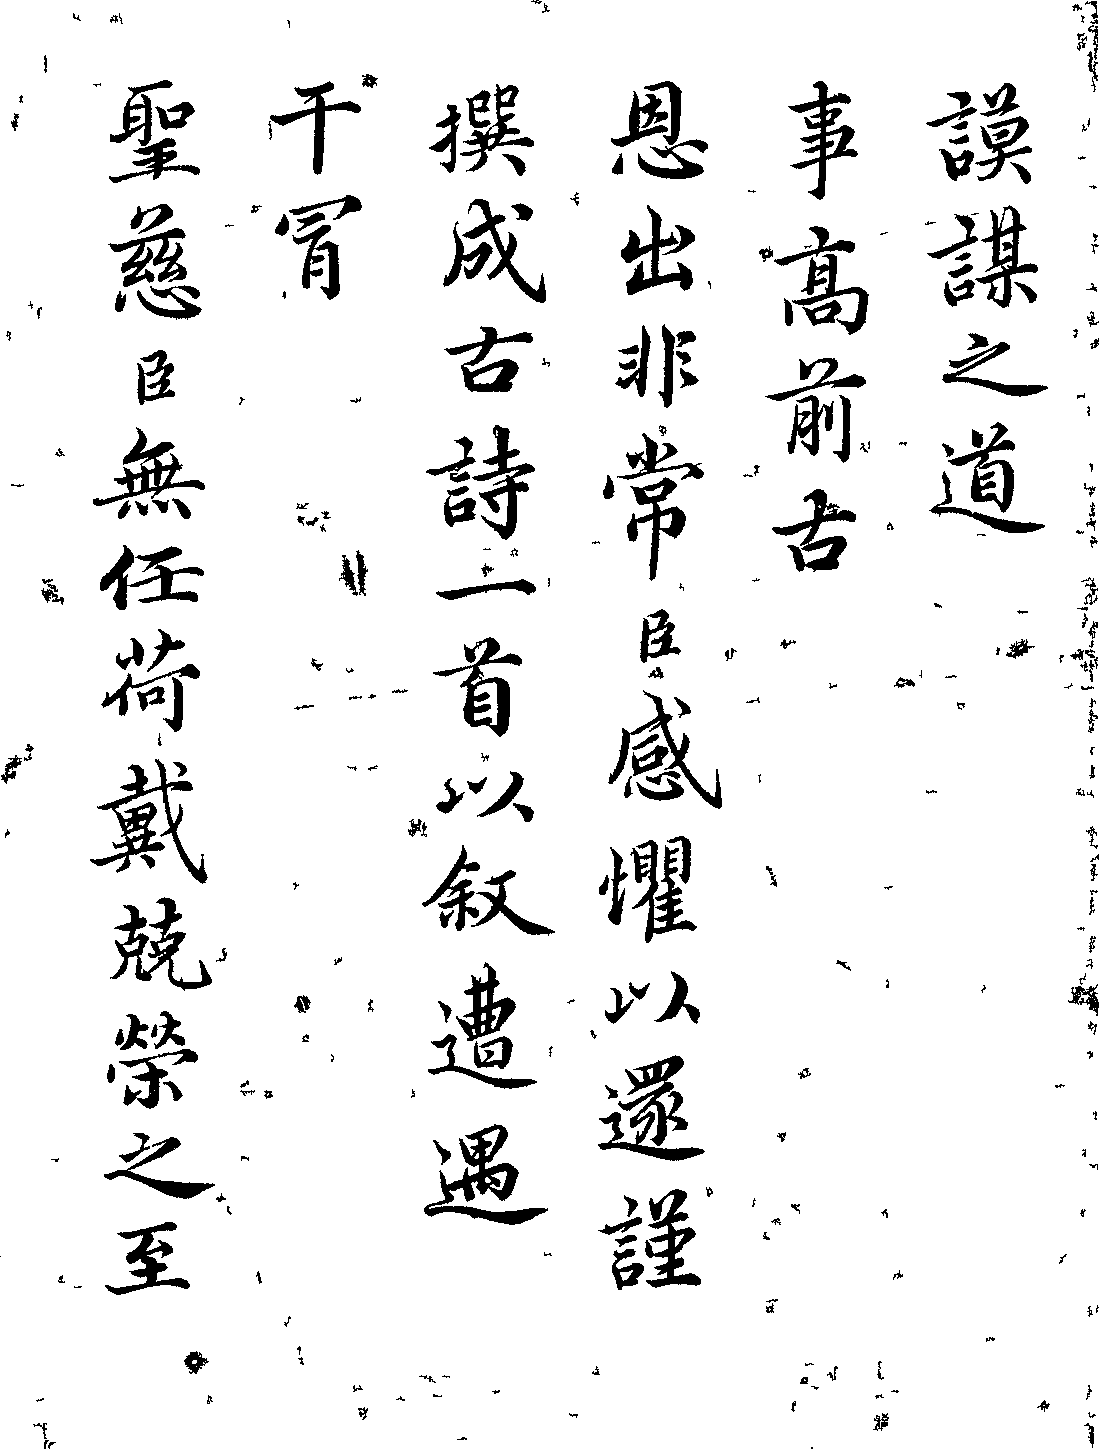 謨謀之道
事高前古
恩出非常臣感懼以還謹
撰成古詩一首以敘遭遇
干冒
聖慈臣無任荷戴兢榮之至